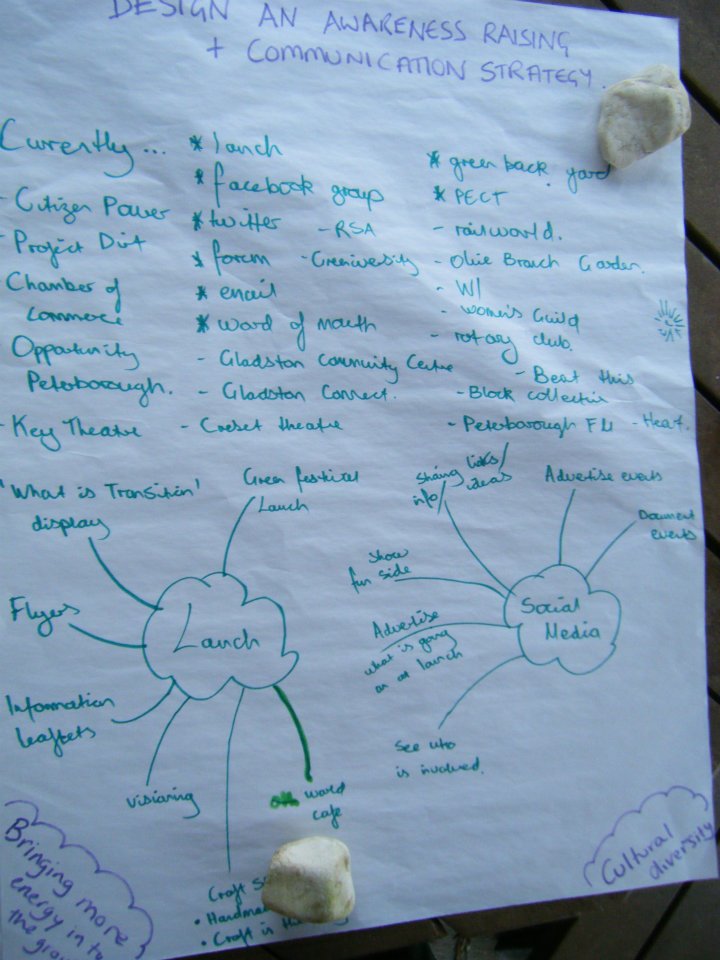 DESIGN AN AWARENESS RAISING
+ COMMUNICATION STRATEGY.
Currently...
- Citizen Power
- Project Dirt
Chamber of
commerce
Opportunity
Peterborough.
- Key Theatre
* launch
* facebook group
* twitter - RSA
* forum - Greeniversity
* email
* word of mouth
- Gladston Community Centre
- Gladston Connect.
- Creset theatre
* green back yard
* PECT
- railworld.
- Olive Branch Garden.
- WI
- women's Guild
- rotary club.
- Beat this
- Block collectin
- Peterborough FM - Heart.
'What is Transition'
display
Green festival
Launch
Flyers
Launch
Information
leaflets
visioning
world
cafe
Craft
• Handma
• Craft is th
Sharing links/
info/ ideas
Advertise events
Document
events
Show
fun side
Social
Media
Advertise
what is going
on at launch
See who
is involved.
Bringing more
energy in to
the grou
Cultural
diversity